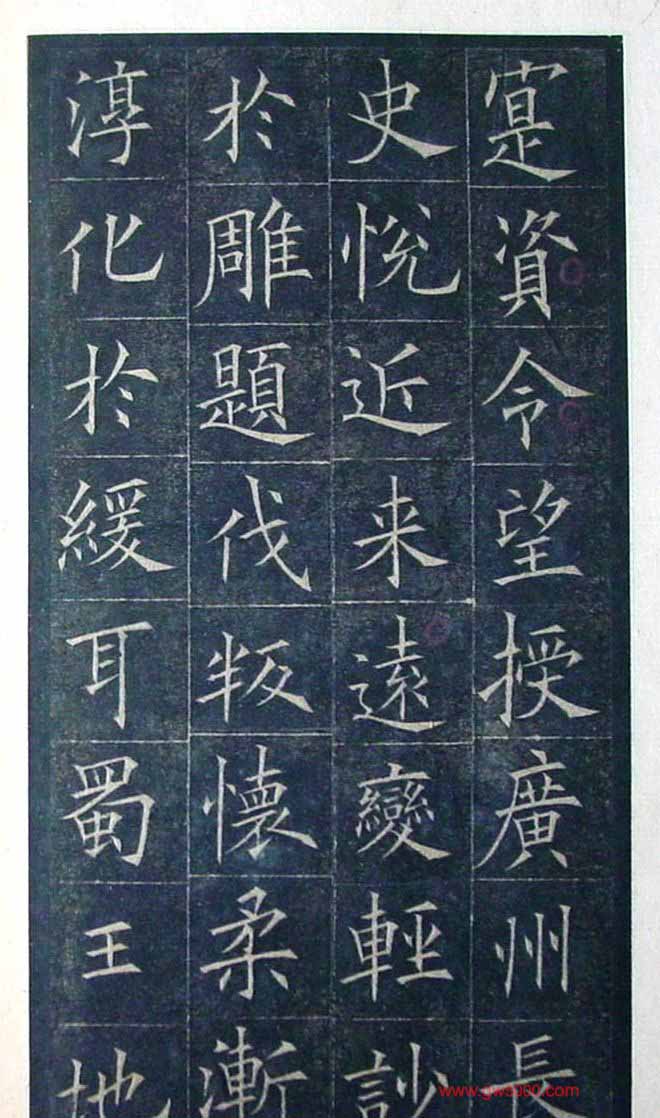 寔資令望授廣州長
史悅近来遠變輕訬
於雕題伐叛懷柔漸
淳化於緩耳蜀王地
www.gw5900.com